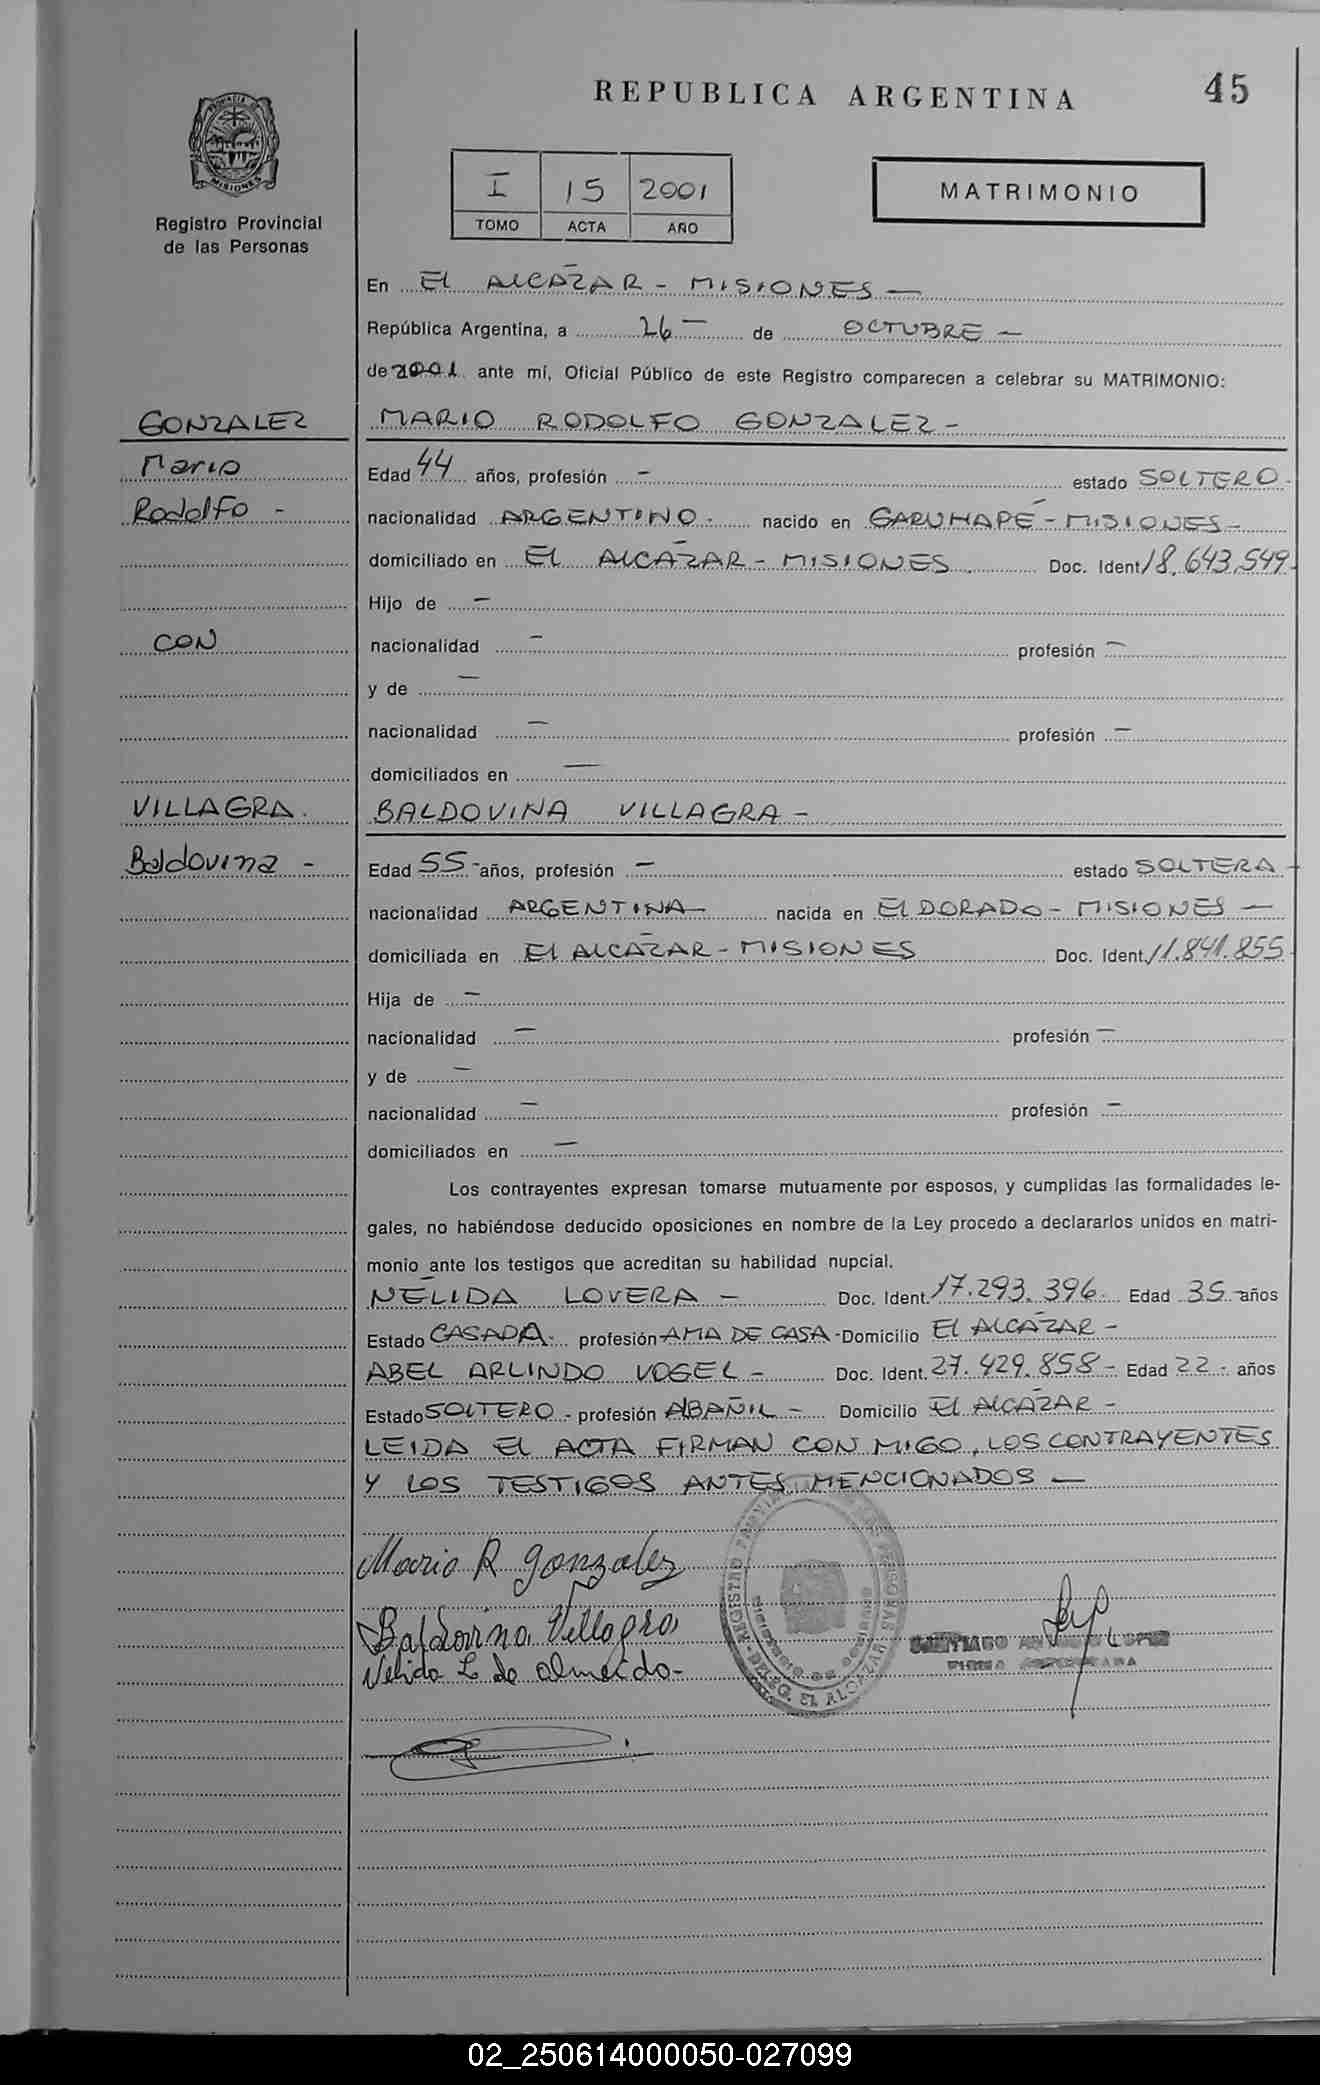 REPUBLICA ARGENTINA
45
PROVINCIA DE
MISIONES
Registro Provincial
de las Personas
I 15 2001
TOMO ACTA AÑO
MATRIMONIO
En El ALCAZAR - MISIONES -
República Argentina, a 26 - de OCTUBRE -
de 2001 ante mí, Oficial Público de este Registro comparecen a celebrar su MATRIMONIO:
GONZALEZ
MARIO RODOLFO GONZALEZ -
Mario
Edad 44 años, profesión - estado SOLTERO -
Rodolfo -
nacionalidad ARGENTINO - nacido en GARUHAPÉ - MISIONES -
domiciliado en El ALCAZAR - MISIONES. Doc. Ident. 18.643.549-
Hijo de -
CON
nacionalidad - profesión -
y de -
nacionalidad - profesión -
domiciliados en -
VILLAGRA.
BALDOVINA VILLAGRA -
Baldovina -
Edad 55 - años, profesión - estado SOLTERA -
nacionalidad ARGENTINA - nacida en ElDORADO - MISIONES -
domiciliada en El ALCAZAR - MISIONES Doc. Ident. 11.841.855-
Hija de -
nacionalidad - profesión -
y de -
nacionalidad - profesión -
domiciliados en -
Los contrayentes expresan tomarse mutuamente por esposos, y cumplidas las formalidades le-
gales, no habiéndose deducido oposiciones en nombre de la Ley procedo a declararlos unidos en matri-
monio ante los testigos que acreditan su habilidad nupcial.
NÉLIDA LOVERA - Doc. Ident. 17.293.396- Edad 35 - años
Estado CASADA - profesión AMA DE CASA - Domicilio El ALCAZAR -
ABEL ARLINDO VOGEL - Doc. Ident. 27.429.858 - Edad 22 - años
Estado SOLTERO - profesión ALBAÑIL - Domicilio El ALCAZAR -
LEIDA El ACTA FIRMAN CON MIGO, LOS CONTRAYENTES
Y LOS TESTIGOS ANTES MENCIONADOS -
Mario R gonzalez
Baldovina Villagra
Nelida L de almeida-
REGISTRO PROVINCIAL DE LAS PERSONAS
DELEG. EL ALCAZAR
SANTIAGO LOPEZ
FIRMA AUTORIZADA
02_250614000050-027099